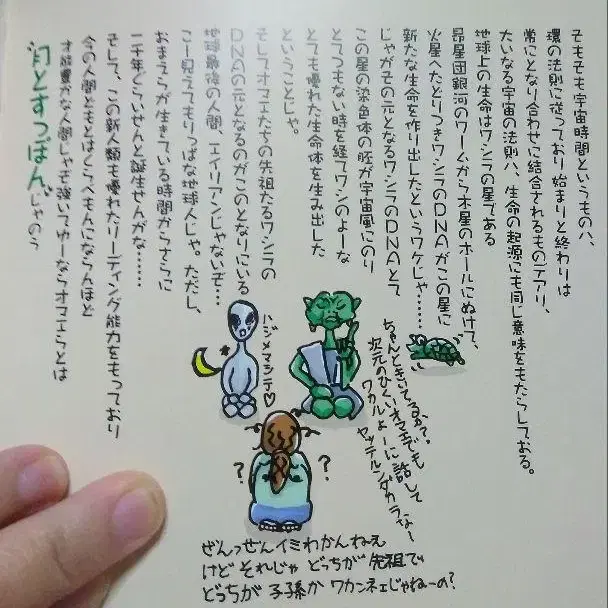 そもそも宇宙時間というものハ、
環の法則に従っており始まりと終わりは
常にとなり合わせに結合されるものデアリ、
大いなる宇宙の法則ハ、生命の起源にも同じ意味をもたらしておる。
地球上の生命はワシラの星である
昴星団銀河のワームから木星のホールにぬけて、
火星へたどりつきワシラのDNAがこの星に
新たな生命を作り出したというワケじゃ……
じゃがその元となるワシラのDNAとて
この星の染色体の胚が宇宙風にのり
とてつもない時を経てワシのよーな
とても優れた生命体を生み出した
ということじゃ。
そしてオマエたちの先祖たるワシラの
DNAの元となるのがこのとなりにいる
地球最後の人間、エイリアンじゃないぞ…
こー見えてもりっぱな地球人じゃ。ただし、
おまえらが生きている時間からさらに
二千年ぐらいせんと誕生せんがな……
そして、この新人類も優れたリーディング能力をもっており
今の人間どもとはくらべもんにならんほど
才能豊かな人間じゃぞ強いてゆーならオマエらとは
"月とすっぽん"じゃのう
ハジメマシテ♡
ちゃんときいてるか?
次元のひくいオマエでも
ワカルよーに話して
ヤッテルンダカラな〜
?
?
ぜんっぜんイミわかんねぇ
けど それじゃ どっちが 先祖で
どっちが 子孫か ワカンネェじゃねーの?